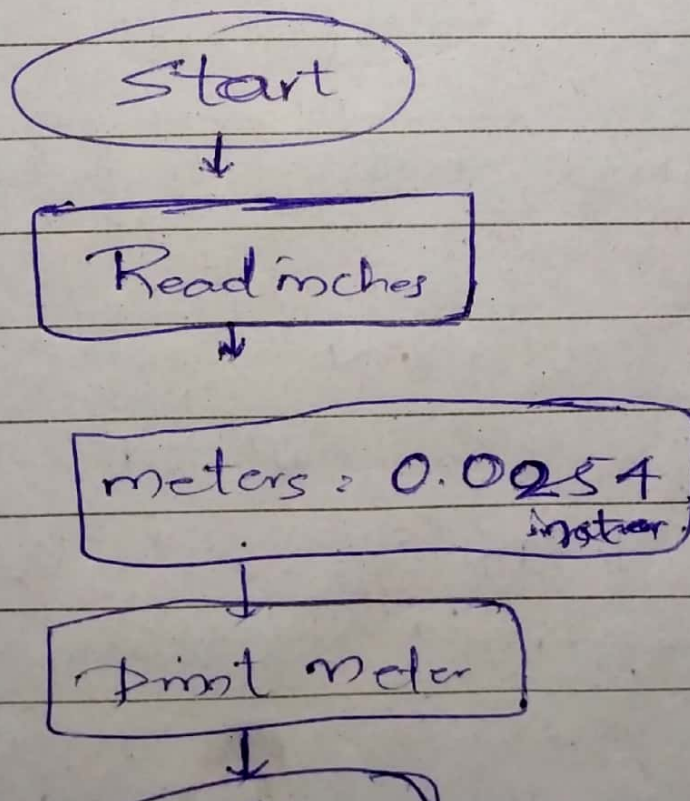 Start
Read inches
meters = 0.0254
Print meter